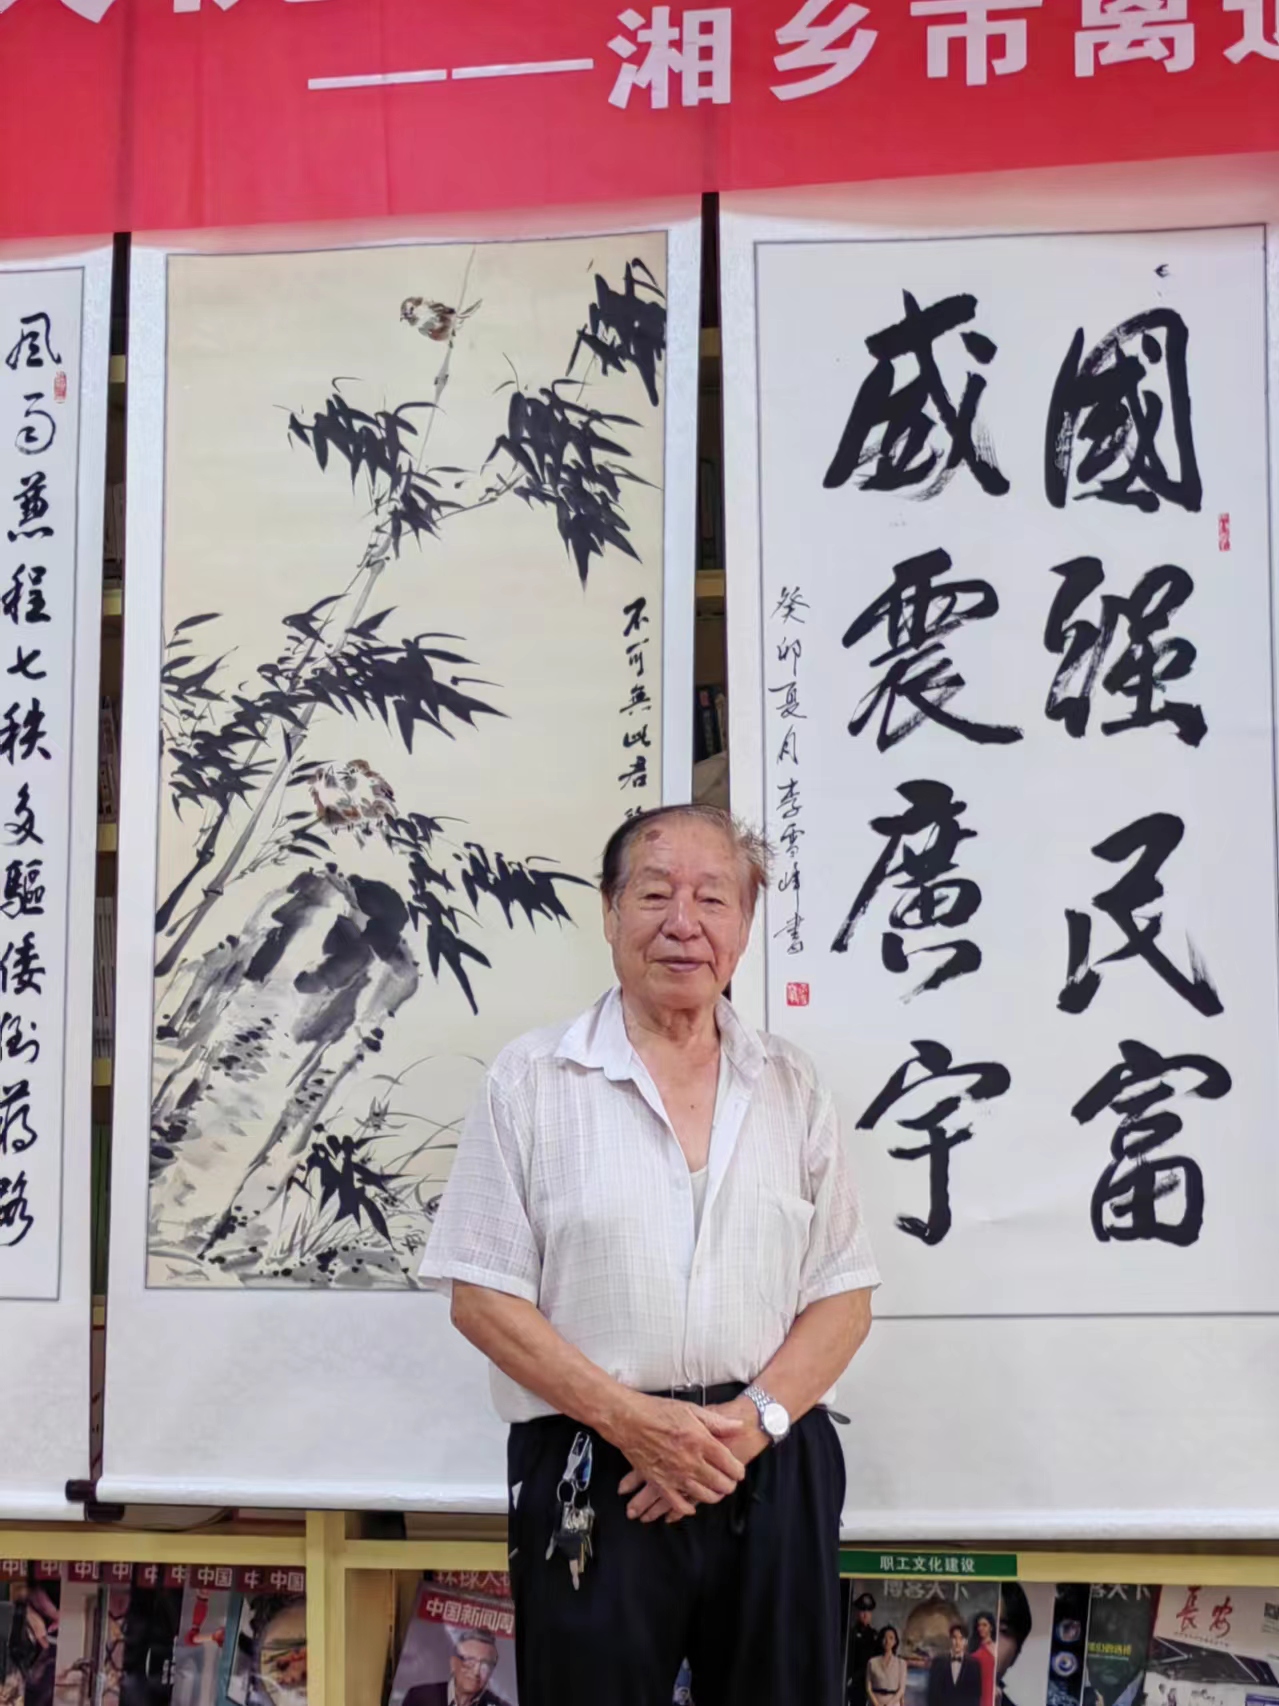 ——湘乡市离退
國强民富
威震廣宇
癸卯夏月李雪峰書
不可無此君
風雨兼程七秩多驅倭倒蒋路
职工文化建设
中国
中国
中国新闻周
环球人
博客天下
长安